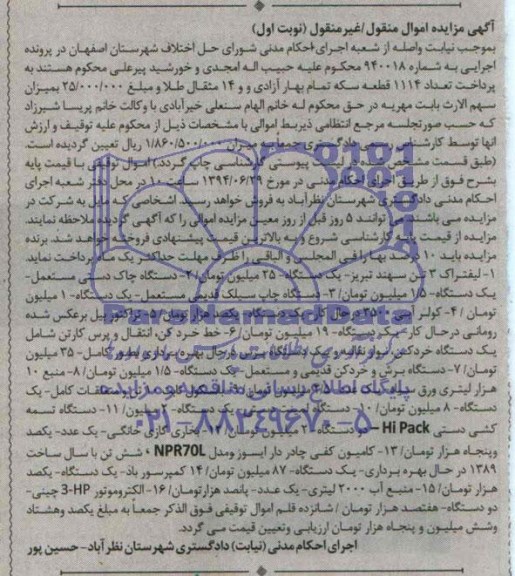 آگهی مزایده اموال منقول/غیرمنقول (نوبت اول)
بموجب نیابت واصله از شعبه اجرای احکام مدنی شورای حل اختلاف شهرستان اصفهان در پرونده
اجرایی به شماره ۹۴۰۰۱۸ محکوم علیه حبیب اله امجدی و خورشید پیرعلی محکوم هستند به
پرداخت تعداد ۱۱۱۴ قطعه سکه تمام بهار آزادی و و ۱۴ مثقال طلا و مبلغ ۲۵/۰۰۰/۰۰۰ بمیزان
سهم الارث بابت مهریه در حق محکوم له خانم الهام سنعلی خیرآبادی با وکالت خانم پریسا شیرزاد
که حسب صورتجلسه مرجع انتظامی ذیربط اموالی با مشخصات ذیل از محکوم علیه توقیف و ارزش
آنها توسط کارشناس رسمی دادگستری جمعا به میزان ۱/۸۶۰/۵۰۰/۰۰۰ ریال تعیین گردیده است.
(طبق قسمت مشخص شده در لیست پیوستی کارشناسی چاپ گردد.) اموال توقیفی با قیمت پایه
بشرح فوق از طریق اجرای احکام مدنی در مورخ ۱۳۹۴/۰۶/۲۹ ساعت ۱۰ در محل دفتر شعبه اجرای
احکام مدنی دادگستری شهرستان نظرآباد به فروش خواهد رسید. اشخاصی که مایل به شرکت در
مزایده می باشند می توانند ۵ روز قبل از روز معین مزایده اموالی را که آگهی گردیده ملاحظه نمایند.
مزایده از قیمت پایه کارشناسی شروع و به بالاترین قیمت پیشنهادی فروخته خواهد شد. برنده
مزایده باید ۱۰ درصد بها را فی المجلس و الباقی را ظرف مهلت حداکثر یک ماه پرداخت نماید
۱- لیفتراک ۳ تن سهند تبریز- یک دستگاه- ۲۵ میلیون تومان/ ۲- دستگاه چاک دستی مستعمل-
یک دستگاه- ۱/۵ میلیون تومان/ ۳- دستگاه چاپ سیلک قدیمی مستعمل- یک دستگاه- ۱ میلیون
تومان /۴- کولر آبی ۳۵۰۰ در حال کار- یک دستگاه- یکصد هزار تومان/ ۵- تراکتور بیل برعکس شده
رومانی در حال کار- یک دستگاه- ۱۹ میلیون تومان/ ۶- خط خرد کن، انتقال و پرس کارتن شامل
یک دستگاه خردکن، نوار نقاله و یک دستگاه پرس در حال بهره برداری بطور کامل- ۳۵ میلیون
تومان/ ۷- دستگاه برش و خردکن قدیمی و مستعمل- یک دستگاه- ۱/۵ میلیون تومان/ ۸- منبع ۱۰
هزار لیتری ورق
دستگاه- ۸ میلیون تومان/ ۱۰- یک دستگاه- میلیون تومان/ ۱۱- دستگاه تسمه
کشی دستی Hi Pack- دو دستگاه- ۲ میلیون تومان/ ۱۲- بخاری گازی خانگی- یک عدد- یکصد
وپنجاه هزار تومان/ ۱۳- کامیون کفی چادر دار ایسوز ومدل NPR70L ، شش تن با سال ساخت
۱۳۸۹ در حال بهره برداری- یک دستگاه- ۸۷ میلیون تومان/ ۱۴ کمپرسور باد- یک دستگاه- یکصد
هزار تومان/ ۱۵- منبع آب ۲۰۰۰ لیتری- یک عدد- پانصد هزار تومان/ ۱۶- الکتروموتور 3-HP چینی-
دو دستگاه- هفتصد هزار تومان / شانزده قلم اموال توقیفی فوق الذکر جمعاً به مبلغ یکصد وهشتاد
وشش میلیون و پنجاه هزار تومان ارزیابی وتعیین قیمت می گردد.
اجرای احکام مدنی (نیابت) دادگستری شهرستان نظرآباد- حسین پور
ParsNamadData
پایگاه اطلاع رسانی مناقصه و مزایده
۰۲۱-۸۸۳۴۹۶۷۰-۵